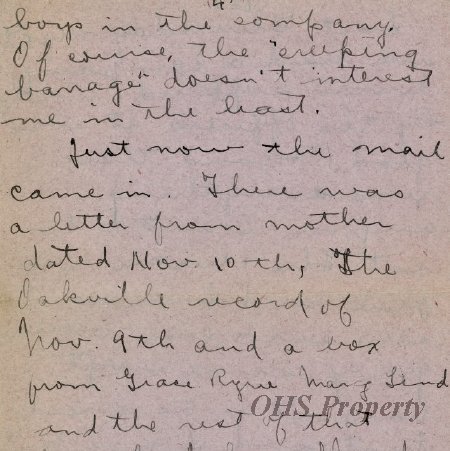 4
boys in the company.
Of course, the "creeping
barrage" doesn't interest
me in the least.
Just now the mail
came in. There was
a letter from mother
dated Nov 10-th, The
Oakville record of
Nov. 9th and a box
from Grace Ryrie Marg Lind
OHS Property
and the rest of that